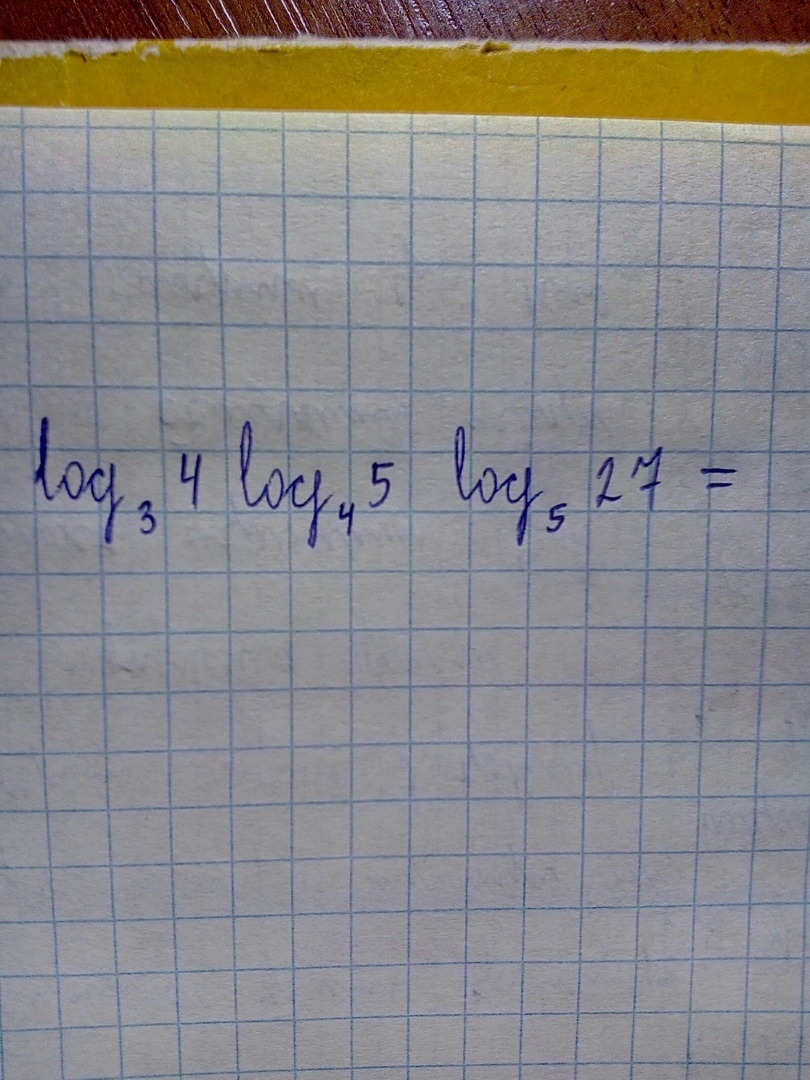 log₃ 4 log₄ 5 log₅ 27 =